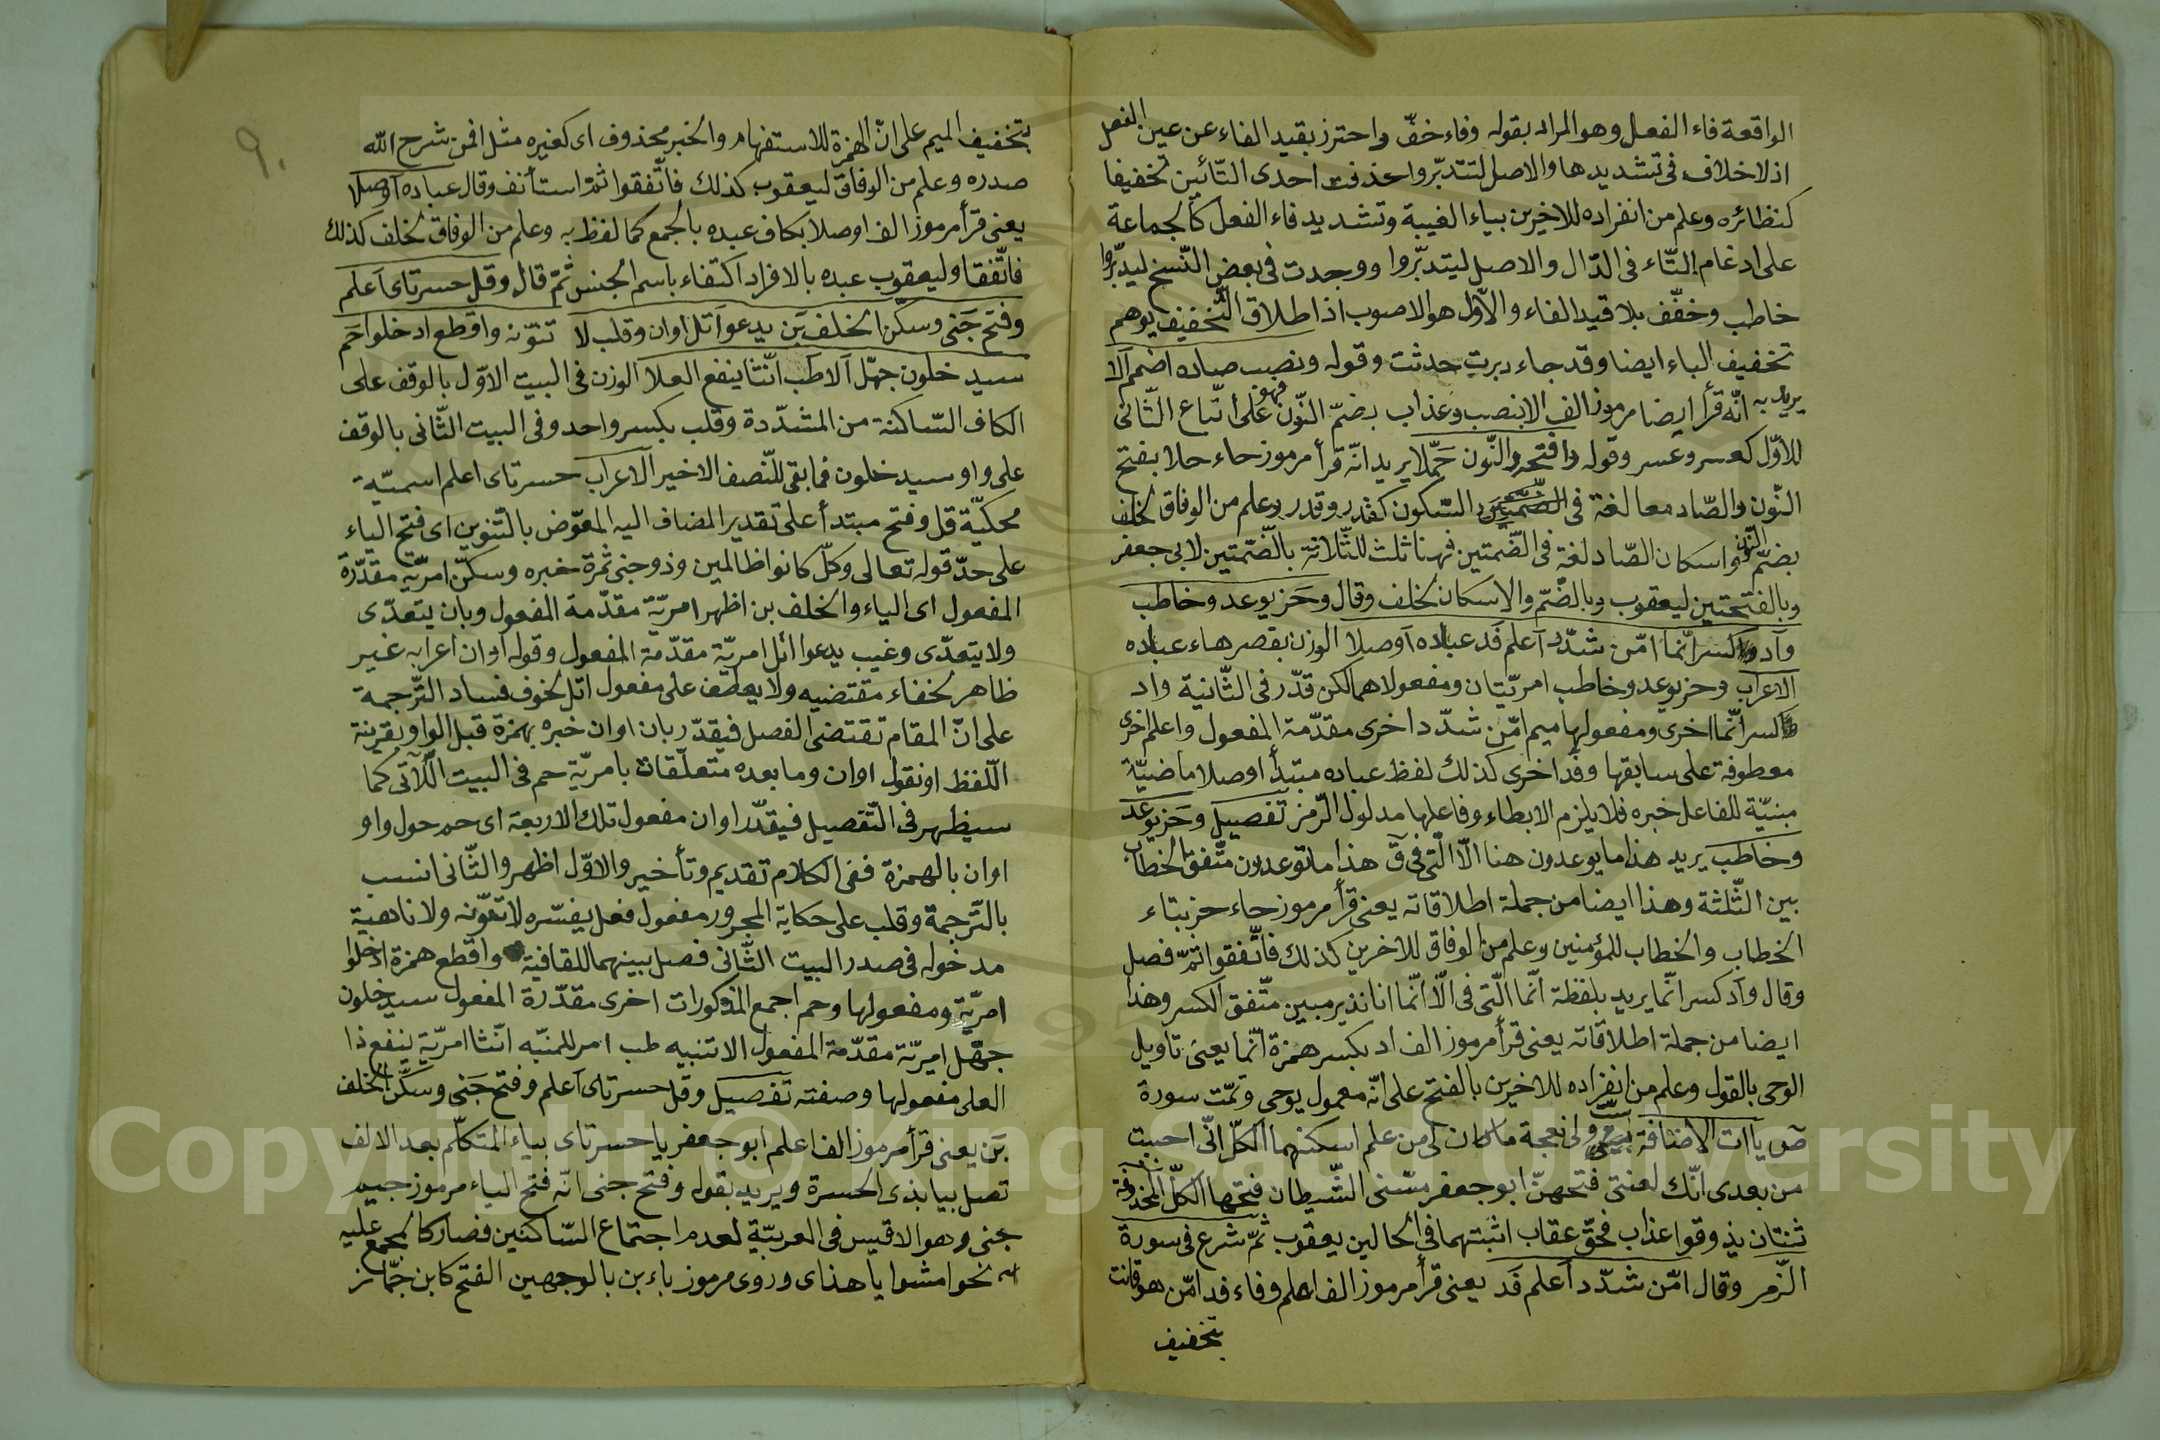 الواقعة فاء الفعل وهو المراد بقوله وفاء خفّ واحترز بقيد الفاء عن عين الفعل
اذ لا خلاف فى تشديدها والاصل لتتدبّروا حذفت احدى التّائين تخفيفا
كنظائره وعلم من انفراده للاخرين بياء الغيبة وتشديد فاء الفعل كالجماعة
على ادغام التّاء فى الدّال والاصل ليتدبّروا ووجدت فى بعض النّسخ ليدبّروا
خاطب وخفّف بلا قيد الفاء والاوّل هو الاصوب اذ اطلاق التّخفيف يوهم
تخفيف الباء ايضا وقد جاء دبرت حدثت وقوله ونصب صاده اضمم الا
يريد به انّه قرأ ايضا مرموز الف الا بنصب وعذاب بضمّ النّون فهو على اتباع الثّانى
للاوّل كعسر وعسر وقوله وافتحه والنّون حمّلا يريد انّه قرأ مرموز حاء حلا بفتح
النّون والصّاد معا لغة فى السّكون كقدر وقدر وعلم من الوفاق لخلف
بضمّ النّون واسكان الصّاد لغة فى الضّمتين فهنا ثلث للثّلاثة بالضّمّتين لابى جعفر
وبالفتحتين ليعقوب وبالضّمّ والاسكان لخلف وقال وحز يوعد وخاطب
وأد كسر انّما امّن شدّد اعلم فد عباده اوصلا الوزن بقصر هاء عباده
الاعراب وحز يوعد وخاطب امريّتان ومفعولاهما لكن قدّر فى الثّانية واد
كسر انّما اخرى ومفعولها ميم امّن شدّد اخرى مقدّمة المفعول واعلم اخرى
معطوفة على سابقها وفد اخرى كذلك لفظ عباده مبتدأ اوصلا ماضيّة
مبنيّة للفاعل خبره فلا يلزم الابطاء وفاعلها مدلول الرّمز تفصيل وحز يوعد
وخاطب يريد هذا ما يوعدون هنا الّا الّتى فى ق هذا ما توعدون متّفق الخطاب
بين الثّلثة وهذا ايضا من جملة اطلاقاته يعنى قرأ مرموز حاء حز بتاء
الخطاب والخطاب للمؤمنين وعلم من الوفاق للاخرين كذلك فاتّفقوا ثمّ فصل
وقال وأد كسر انّما يريد بلفظة انّما الّتى فى الّا انّما انا نذير مبين متّفق الكسر وهذا
ايضا من جملة اطلاقاته يعنى قرأ مرموز الف اد بكسر همزة انّما يعنى تاويل
الوحى بالقول وعلم من انفراده للاخرين بالفتح على انّه معمول يوحى وتمّت سورة
ص ياآت الاضافة ستّ ولى نعجة ما كان لى من علم اسكنهما الكلّ انّى احببت
من بعدى انّك لعنتى فتحهنّ ابو جعفر مسّنى الشّيطان فتحها الكلّ المحذوفة
ثنتان يذوقوا عذاب فحقّ عقاب اثبتهما فى الحالين يعقوب ثمّ شرع فى سورة
الزّمر وقال امّن شدّد اعلم فد يعنى قرأ مرموز الف اعلم وفاء فد امّن هو قانت
بتخفيف
٩٠
بتخفيف الميم على انّ الهمزة للاستفهام والخبر محذوف اى كغيره مثل افمن شرح الله
صدره وعلم من الوفاق ليعقوب كذلك فاتّفقوا ثمّ استأنف وقال عباده اوصلا
يعنى قرأ مرموز الف اوصلا بكاف عبده بالجمع كما لفظ به وعلم من الوفاق لخلف كذلك
فاتّفقا وليعقوب عبده بالافراد اكتفاء باسم الجنس ثمّ قال وقل حسرتاى اعلم
وفتح جنى وسكّن الخلف بن يدعو اتل اوان وقلب لا تنوّنه واقطع ادخلوا حم
سيدخلون جهّل الا طب انّثا ينفع العلا الوزن فى البيت الاوّل بالوقف على
الكاف السّاكنة من المشدّدة وقلب بكسر واحد وفى البيت الثّانى بالوقف
على واو سيدخلون فما بقى للنّصف الاخير الاعراب حسرتاى اعلم اسميّة
محكيّة قل وفتح مبتدأ على تقدير المضاف اليه المعوّض بالتّنوين اى فتح الياء
على حدّ قوله تعالى وكلّ كانوا ظالمين وذو جنى ثمرة خبره وسكّن امريّة مقدّرة
المفعول اى الياء والخلف بن اظهر امريّة مقدّمة المفعول وبان يتعدّى
ولا يتعدّى وغيب يدعوا اتل امريّة مقدّمة المفعول وقوله اوان اعرابه غير
ظاهر لخفاء مقتضيه ولا يعطف على مفعول اتل لخوف فساد التّرجمة
على انّ المقام تقتضى الفصل فيقدّر بان اوان خبره بهمزة قبل الواو بقرينة
اللّفظ او نقول اوان وما بعده متعلّقان بامريّة حم فى البيت اللّآتى كما
سيظهر فى التّفصيل فيقدّر اوان مفعول تلك الاربعة اى حم حول واو
اوان بالهمزة ففى الكلام تقديم وتأخير والاوّل اظهر والثّانى انسب
بالتّرجمة وقلب على حكاية المجرور مفعول فعل يفسّره لا تنوّنه ولا ناهية
مدخوله فى صدر البيت الثّانى فصل بينهما للقافية واقطع همزة ادخلوا
امريّة ومفعولها وحم اجمع المذكورات اخرى مقدّرة المفعول سيدخلون
جهّل امريّة مقدّمة المفعول الا تنبيه طب امر للمنبّه انّثا امريّة ينفع ذا
العلى مفعولها وصفته تفصيل وقل حسرتاى اعلم وفتح جنى وسكّن الخلف
بن يعنى قرأ مرموز الف اعلم ابو جعفر يا حسرتاى بياء المتكلّم بعد الالف
تصل بيا بذى الحسرة ويريد بقوله وفتح جنى انّه فتح الياء مرموز جيم
جنى وهو الاقيس فى العربيّة لعدم اجتماع السّاكنين فصار كالمجمع عليه
نحو امشوا يا هذاى وروى مرموز باء بن بالوجهين الفتح كابن جمّاز
Copyright © King Saud University